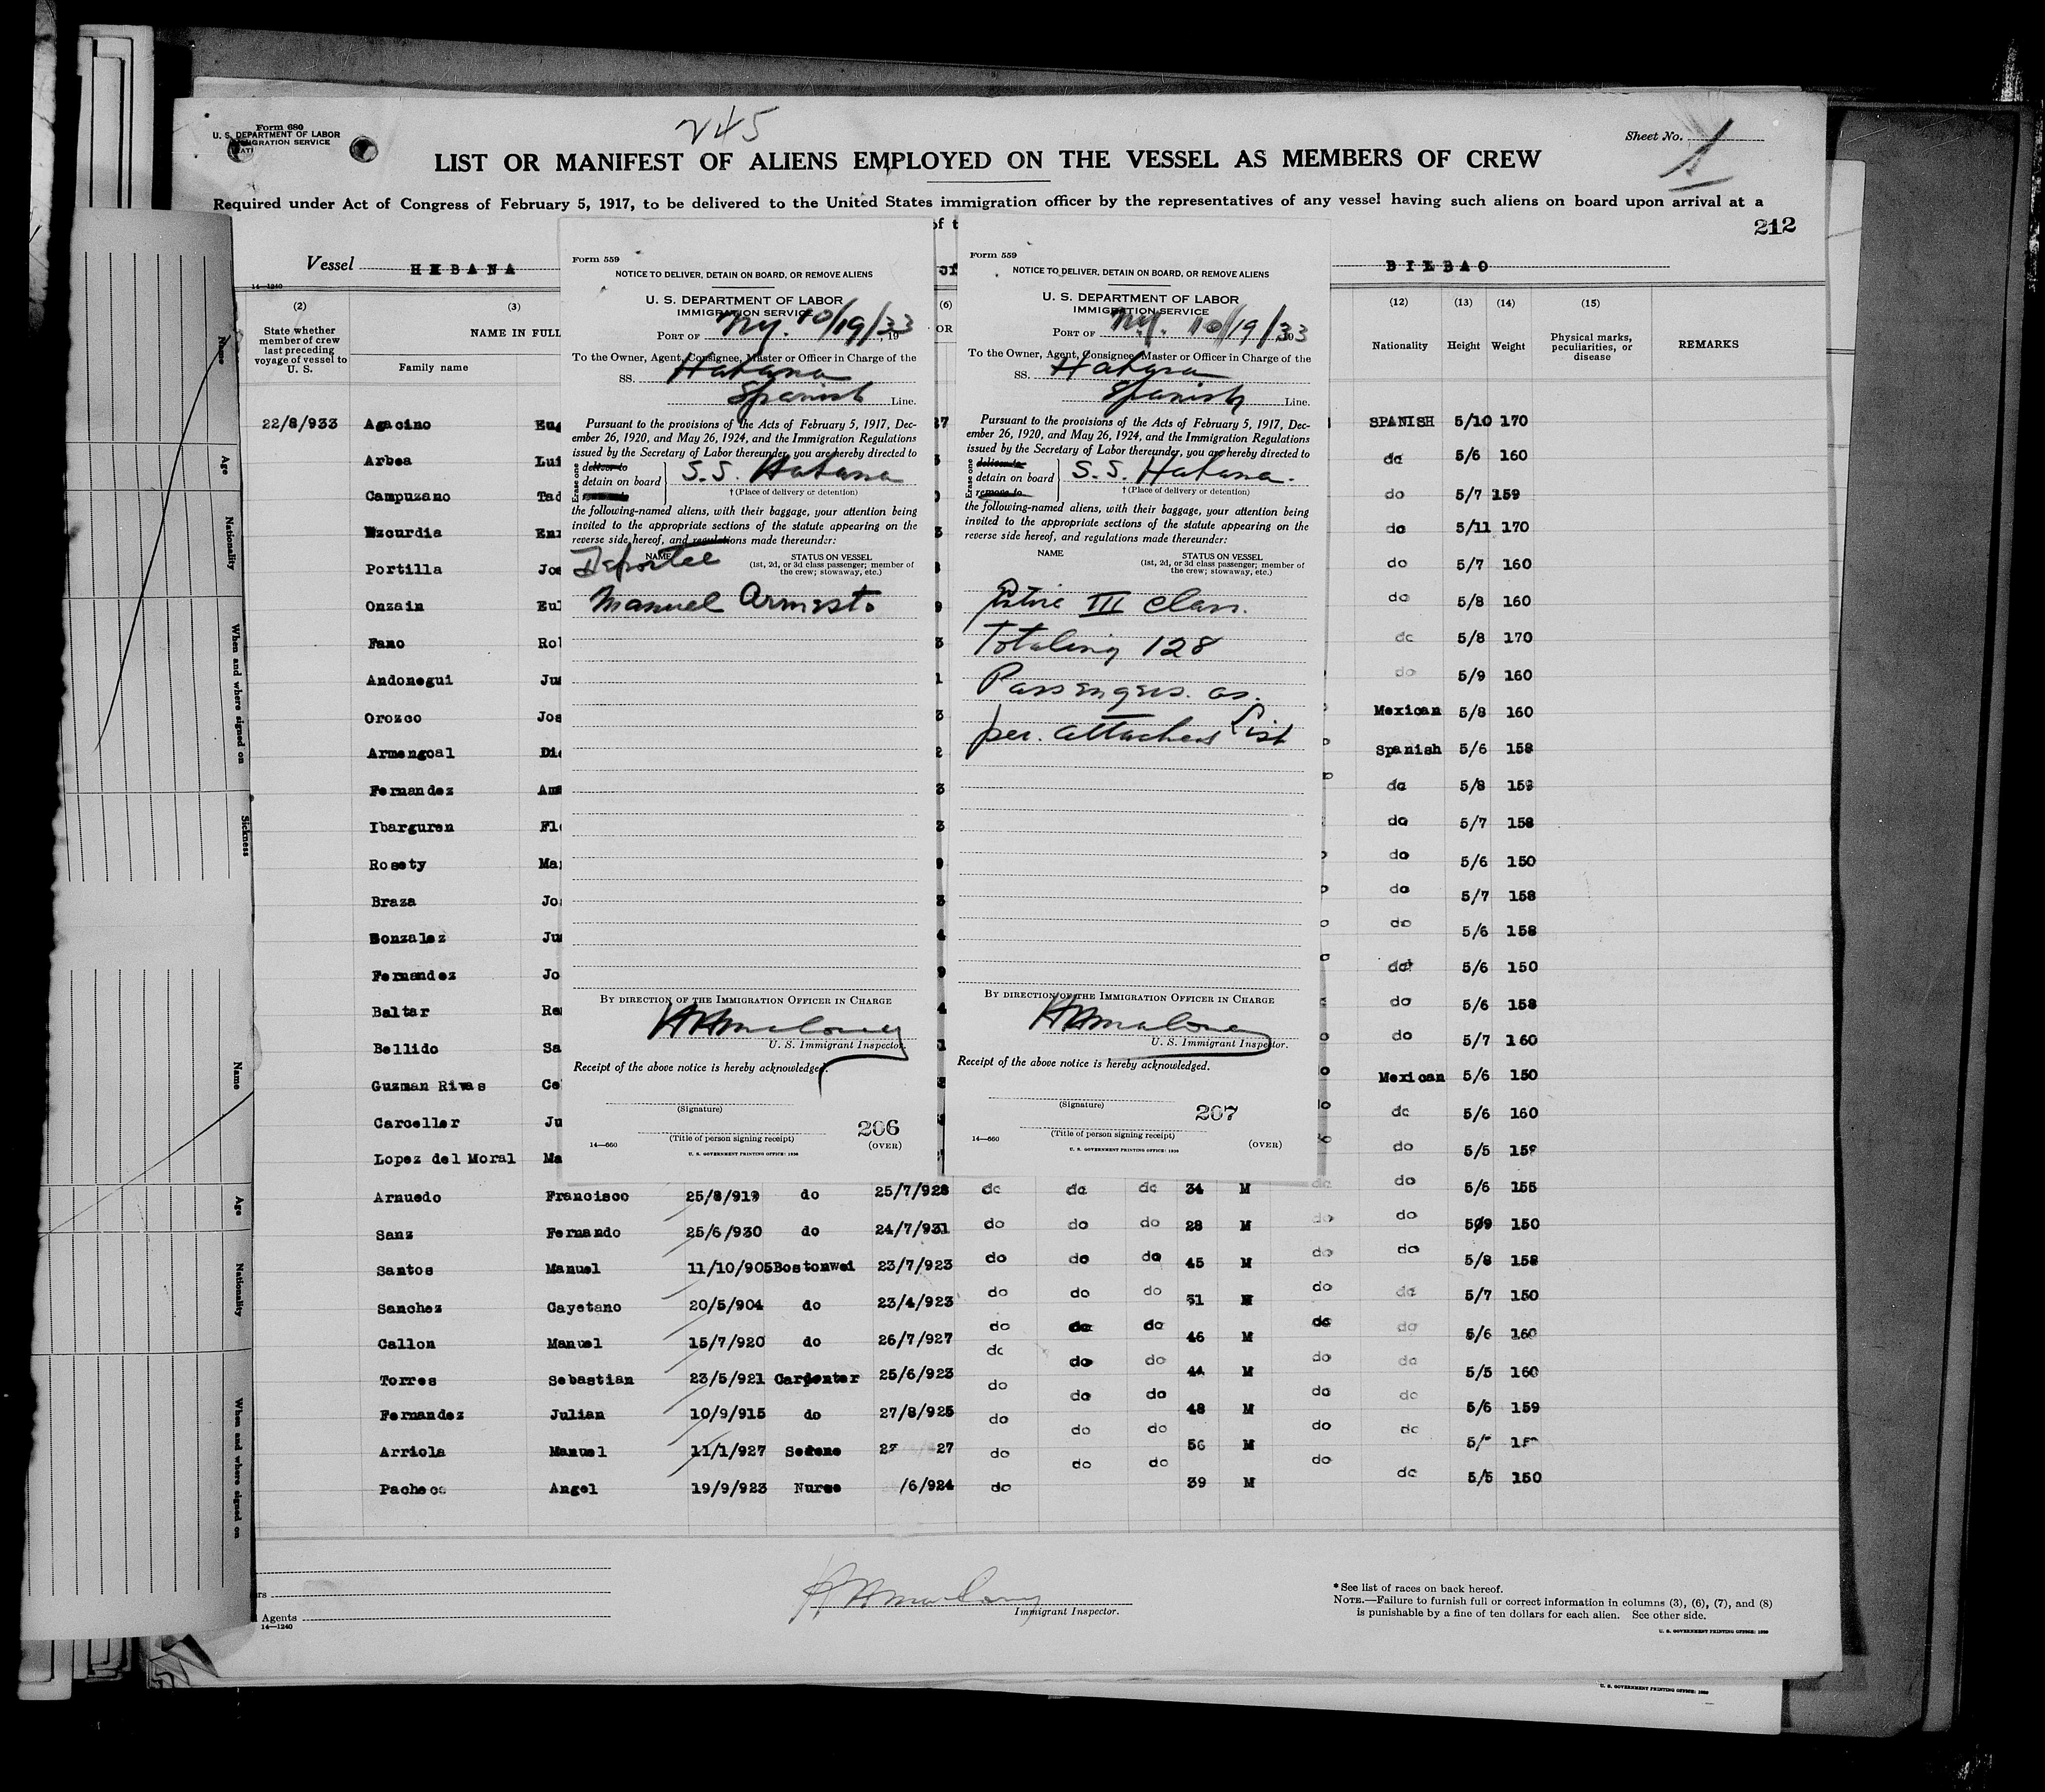 245
Form 680
U. S. DEPARTMENT OF LABOR
IMMIGRATION SERVICE
Sheet No. 1
LIST OR MANIFEST OF ALIENS EMPLOYED ON THE VESSEL AS MEMBERS OF CREW
Required under Act of Congress of February 5, 1917, to be delivered to the United States immigration officer by the representatives of any vessel having such aliens on board upon arrival at a
of t
212
Vessel HABANA
BILBAO
14—1240
(2)
State whether member of crew last preceding voyage of vessel to U. S.
(3)
NAME IN FULL
Family name
(6)
OR
(12)
Nationality
(13)
Height
(14)
Weight
(15)
Physical marks, peculiarities, or disease
REMARKS
Form 559
NOTICE TO DELIVER, DETAIN ON BOARD, OR REMOVE ALIENS
U. S. DEPARTMENT OF LABOR
IMMIGRATION SERVICE
PORT OF N.Y. 10/19/33, 19
To the Owner, Agent, Consignee, Master or Officer in Charge of the
SS. Habana
Spanish Line.
Pursuant to the provisions of the Acts of February 5, 1917, Dec-
ember 26, 1920, and May 26, 1924, and the Immigration Regulations
issued by the Secretary of Labor thereunder, you are hereby directed to
Erase one
deliver to
detain on board
S.S. Habana
† (Place of delivery or detention)
the following-named aliens, with their baggage, your attention being
invited to the appropriate sections of the statute appearing on the
reverse side hereof, and regulations made thereunder:
NAME
STATUS ON VESSEL
(1st, 2d, or 3d class passenger; member of
the crew; stowaway, etc.)
Deportee
Manuel Armesto
BY DIRECTION OF THE IMMIGRATION OFFICER IN CHARGE
U. S. Immigrant Inspector.
Receipt of the above notice is hereby acknowledged.
(Signature)
206
(Title of person signing receipt)
14—660
(OVER)
U. S. GOVERNMENT PRINTING OFFICE: 1930
Form 559
NOTICE TO DELIVER, DETAIN ON BOARD, OR REMOVE ALIENS
U. S. DEPARTMENT OF LABOR
IMMIGRATION SERVICE
PORT OF N.Y. 10/19/33
To the Owner, Agent, Consignee, Master or Officer in Charge of the
SS. Habana
Spanish Line.
Pursuant to the provisions of the Acts of February 5, 1917, Dec-
ember 26, 1920, and May 26, 1924, and the Immigration Regulations
issued by the Secretary of Labor thereunder, you are hereby directed to
Erase one
deliver to
detain on board
remove to
S.S. Habana.
† (Place of delivery or detention)
the following-named aliens, with their baggage, your attention being
invited to the appropriate sections of the statute appearing on the
reverse side hereof, and regulations made thereunder:
NAME
STATUS ON VESSEL
(1st, 2d, or 3d class passenger; member of
the crew; stowaway, etc.)
Entire III Class.
Totaling 128
Passengers. as.
per. attached List
BY DIRECTION OF THE IMMIGRATION OFFICER IN CHARGE
U. S. Immigrant Inspector.
Receipt of the above notice is hereby acknowledged.
(Signature)
207
(Title of person signing receipt)
14—660
(OVER)
U. S. GOVERNMENT PRINTING OFFICE: 1930
22/8/933 Agacino Eug 27 SPANISH 5/10 170
Arbea Lui do 5/6 160
Campuzano Tad do 5/7 159
Ezcurdia Enr do 5/11 170
Portilla Jos do 5/7 160
Onzain Eul 9 do 5/8 160
Fano Rol 3 do 5/8 170
Andonegui Ju 1 do 5/9 160
Orozco Jos 3 Mexican 5/8 160
Armengoal Di 2 Spanish 5/6 158
Fernandez Am 3 do 5/8 158
Ibarguren Fl 3 do 5/7 158
Rosety Ma 9 do 5/6 150
Braza Jo 3 do 5/7 158
Gonzalez Ju 4 do 5/6 158
Fernandez Jo 9 do 5/6 150
Baltar Re 4 do 5/6 158
Bellido Sa 1 do 5/7 160
Guzman Rivas Ce Mexican 5/6 150
Carceller Ju do 5/6 160
Lopez del Moral Ma do 5/5 158
Arnuedo Francisco 25/8/919 do 25/7/928 do do do 34 M do do 5/6 155
Sanz Fernando 25/6/930 do 24/7/931 do do do 28 M do do 5/9 150
Santos Manuel 11/10/905 Bostonwei 23/7/923 do do do 45 M do do 5/8 158
Sanchez Cayetano 20/5/904 do 23/4/923 do do do 51 M do do 5/7 150
Callon Manuel 15/7/920 do 26/7/927 do do do 46 M do do 5/6 160
Torres Sebastian 23/5/921 Carpenter 25/6/923 do do do 44 M do do 5/5 160
Fernandez Julian 10/9/915 do 27/8/925 do do do 48 M do do 5/6 159
Arriola Manuel 11/1/927 Sereno 27 27 do do do 56 M do do 5/ 15
Pacheco Angel 19/9/923 Nurse /6/924 do do do 39 M do do 5/5 150
Name
Age
Nationality
When and where signed on
Sickness
Name
Age
Nationality
When and where signed on
Agents
14—1240
Immigrant Inspector.
*See list of races on back hereof.
NOTE.—Failure to furnish full or correct information in columns (3), (6), (7), and (8)
is punishable by a fine of ten dollars for each alien. See other side.
U. S. GOVERNMENT PRINTING OFFICE: 1930
U. S. GOVERNMENT PRINTING OFFICE: 1930